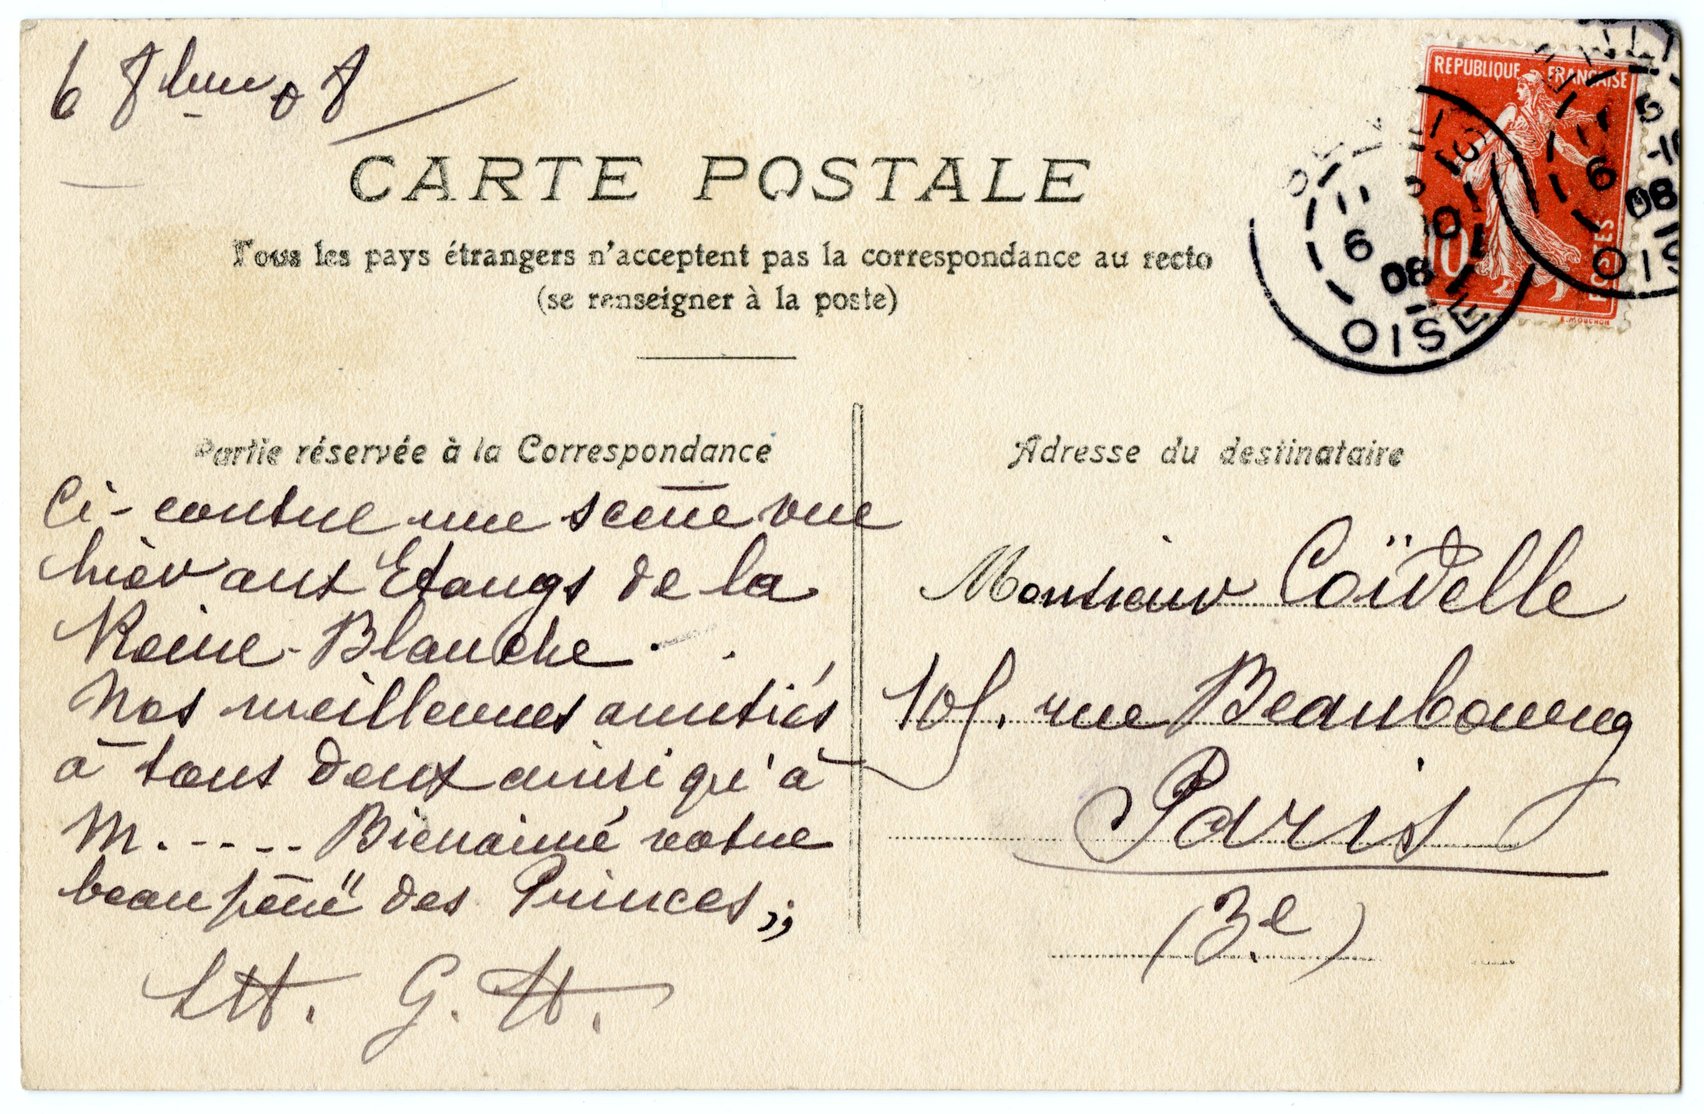 6 8bre 08
CARTE POSTALE
Tous les pays étrangers n'acceptent pas la correspondance au recto
(se renseigner à la poste)
REPUBLIQUE FRANÇAISE
10
POSTES
E. MOUCHON
11
6
08
OISE
11
6
08
OISE
Partie réservée à la Correspondance
Ci-contre une scène vue
hier aux Etangs de la
Reine-Blanche.
Nos meilleures amitiés
à tous deux ainsi qu'à
M. ---- Bienaimé votre
beau père" des Princes,,
G. H.
Adresse du destinataire
Monsieur Coïdelle
101. rue Beaubourg
Paris
(3e)